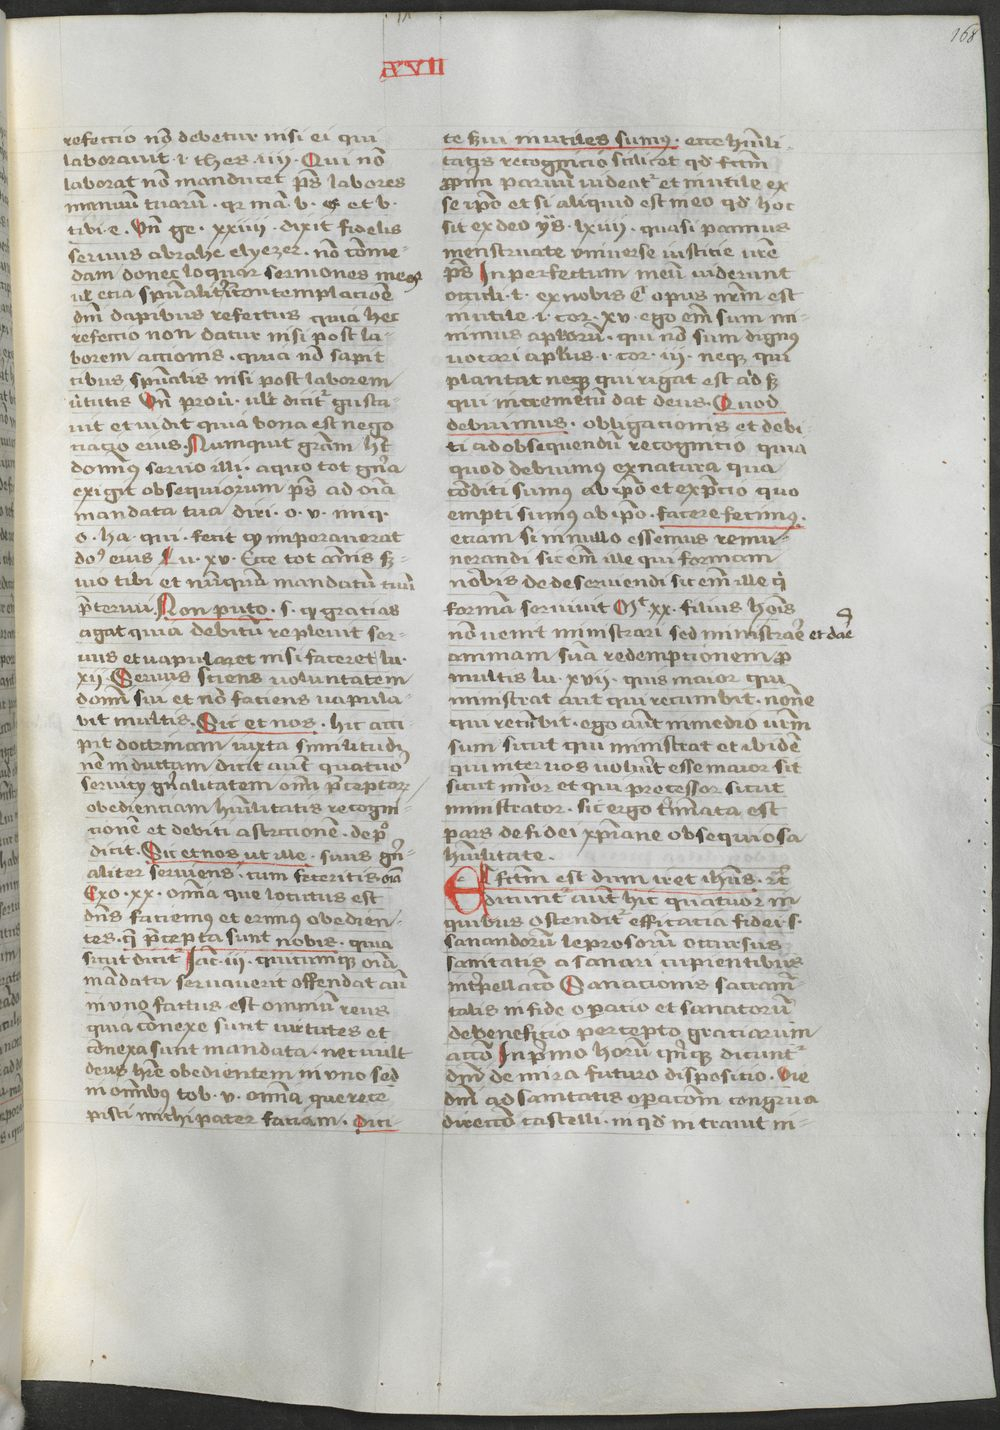 168
XVII
refectio nō debetur nisi ei qui
laborauit · i · thes · iiii · Qui nō
laborat nō manducet p̄s labores
manuū tuarū · qr ma · b · es et b ·
tibi · e · Vn̄ ge · xxiiii · dixit fidelis
seruus abrahe elyezer · nō come-
dam donec loquar sermones meos
ul etiā spūalit̄ contemplacōe
dm̄ dapibus refectus quia hec
refectio non datur nisi post la-
borem actionis · quia nō sapit
cibus spūalis nisi post laborem
ūtutis Vn̄ prou · ult dicitr gusta-
uit et uidit quia bona est nego
tiatio eius · Numquit grām ht
domin9 seruo illi · a quo tot gn̄a
exigit obsequiorum p̄s ad oīa
mandata tua diri · o · v · iniq ·
o · ha · qui · fecit q imperauerat
do9 eius Lu · xv · Ecce tot annis s̄-
uio tibi et nūquā mandatū tuū
p̄teriui · Non puto · s · q gratias
agat quia debitū repleuit ser-
uus et uapularet nisi faceret lu ·
xii · Seruus sciens uoluntatem
domī sui et nō faciens uapula-
bit multis · Sic et nos · hic acci-
pit doctrinam iuxta similitudi
nē inductam dicit aūt quatuor
seruitȳ gn̄alitatem omī p̄ceptorum
obedientiam hūilitatis recogni-
tionē et debiti astrictionē · de po
dicit · Sic et nos ut ille · suus gn̄-
aliter seruiens · cum feceritis oīa
Exo · xx · omīa que locutus est
dn̄s faciemus et erimus obedien-
tes · q̄ p̄cepta sunt nobis · quia
sicut dicitr Iac · iii · quicumque oīa
mādata seruauerit offendat aūt
in uno factus est omnium reus
quia conexe sunt uirtutes et
conexa sunt mandata · nec uult
deus hr̄e obedientem in uno sed
in omībus tob · v · omīa que prece
pisti michi pater faciam · Dici-
te s̄ui inutiles sumus · ecce hūili-
tatis recognicio scilicet qd fcm̄
p̄prm paruū uideatr et inutile ex
se ipō et si aliquid est in eo qd hoc
sit ex deo ys · lxiiii · quasi pannus
menstruate vniuerse iusticie nr̄e
p̄s Inperfectum meū uiderunt
oculi · t · ex nobis C opus nr̄m est
inutile · i · cor · xv · ego em̄ sum mi-
nimus aplorū · qui nō sum dignus
uocari aplus · i · cor · iii · neque qui
plantat neque qui rigat est aliquid s̄
qui incremētū dat deus · Quod
debuimus · obligationis et debi-
ti ad obsequendū recognitio quia
quod debuimus ex natura quia
cōditi sumus ab ipō et ex p̄cio quo
empti sumus ab ipō · facere fecimus ·
etiam si in nullo essemus remu-
nerandi sic em̄ ille qui formam
nobis de deseruiendi sic em̄ ille q̄
formā seruiuit Mt xx · filius hoīs
nō uenit ministrari sed ministrare et dare
animam suā redemptionem p̄
multis lu · xvii · quis maior qui
ministrat aut qui recumbit · nōne
qui recūbit · ego aūt in medio ur̄m
sum sicut qui ministrat et ibidē
qui inter uos uoluerit esse maior sit
sicut minor et qui precessor sicut
ministrator · sic ergo t̄minata est
pars de fidei xp̄iane obsequiosa
hūilitate ·
Et fcm̄ est dum iret ihūs · rc̄
dicuntr aūt hic quatuor in
quibus ostenditr efficacia fidei s ·
sanandorū leprosorū occursus
sanitatis a sanari cupientibus
int̄pellatō Sanacionis sacram̄-
talis in fide operatio et sanatorū
de beneficio percepto gratiarum
actō In p̄mo horū quinque dicuntr
dm̄ de mira futuro dispositio · Vie
dm̄ ad sanitatis opacōm congrua
directō castelli · in qd intrauit in-